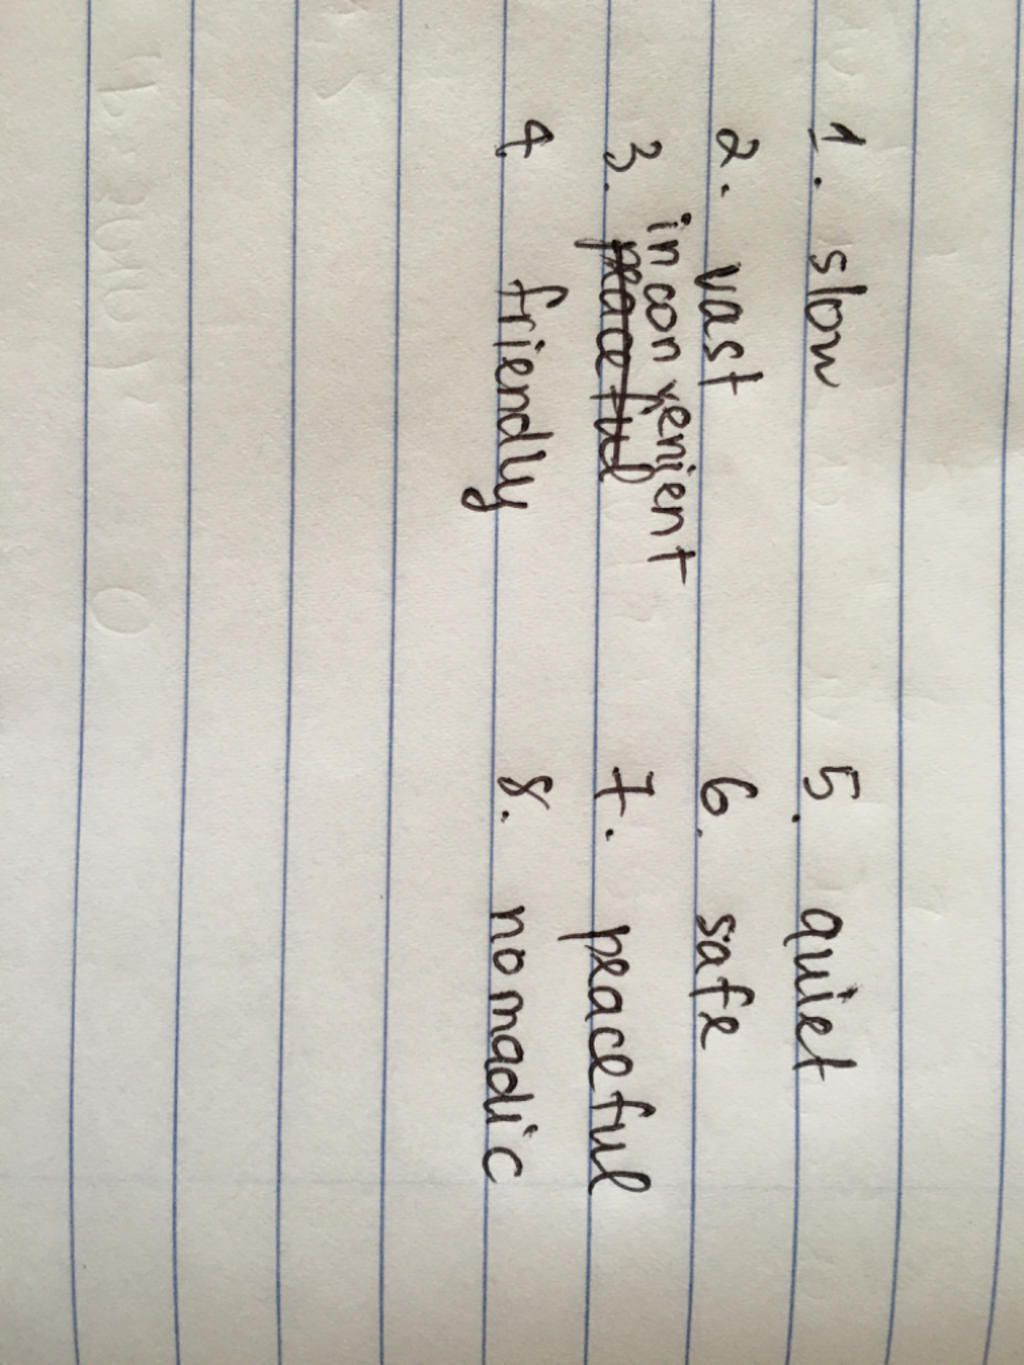 1. slow
2. vast
3. inconvenient
4. friendly
5. quiet
6. safe
7. peaceful
8. nomadic